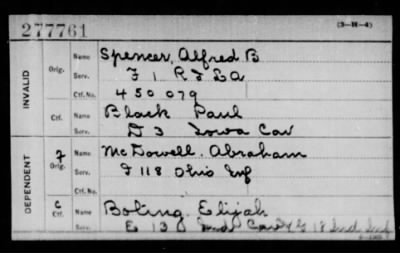 277761
(3-H-4)
INVALID
Orig.
Name Spencer, Alfred B
Serv. F 1 R I L A
Ctf. No. 450079
Ctf.
Name Black Paul
Serv. D 3 Iowa Cav
DEPENDENT
F
Orig.
Name McDowell, Abraham
Serv. I 118 Ohio Inf
Ctf. No.
C
Ctf.
Name Boling Elijah
Serv. E 13 Ind Cav & G 18 Ind Inf